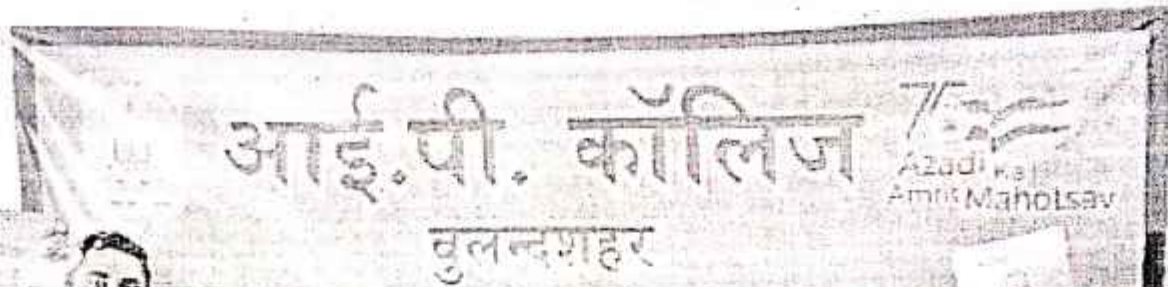 आई.पी. कॉलिज
75
Azadi Ka
Amrit Mahotsav
वुलन्दशहर